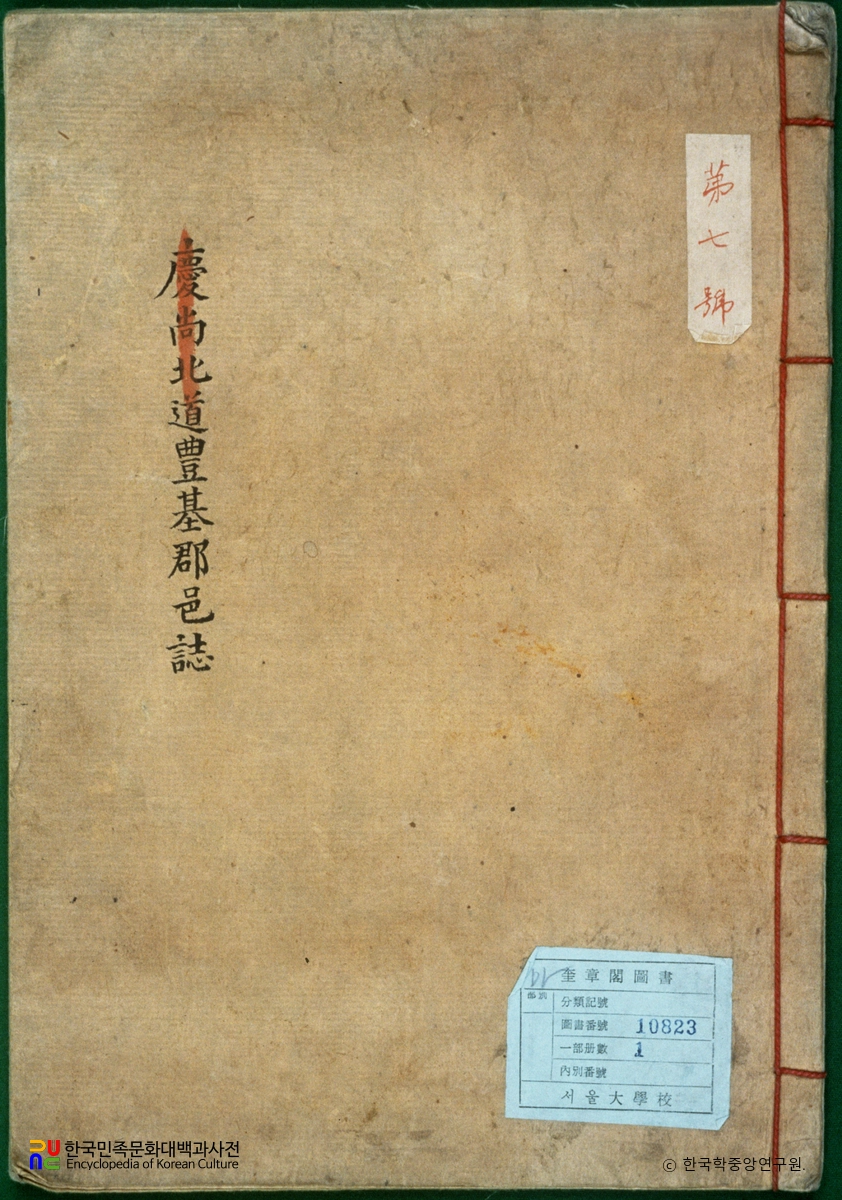 第七號
慶尙北道豊基郡邑誌
奎章閣圖書
分類記號
圖書番號 10823
一部册數 1
內別番號
서울大學校
한국민족문화대백과사전
Encyclopedia of Korean Culture
© 한국학중앙연구원.